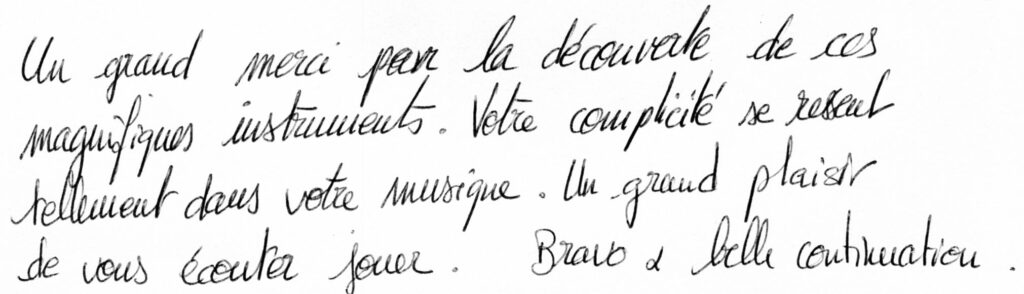 Un grand merci pour la découverte de ces
magnifiques instruments. Votre complicité se ressent
tellement dans votre musique. Un grand plaisir
de vous écouter jouer. Bravo & belle continuation.